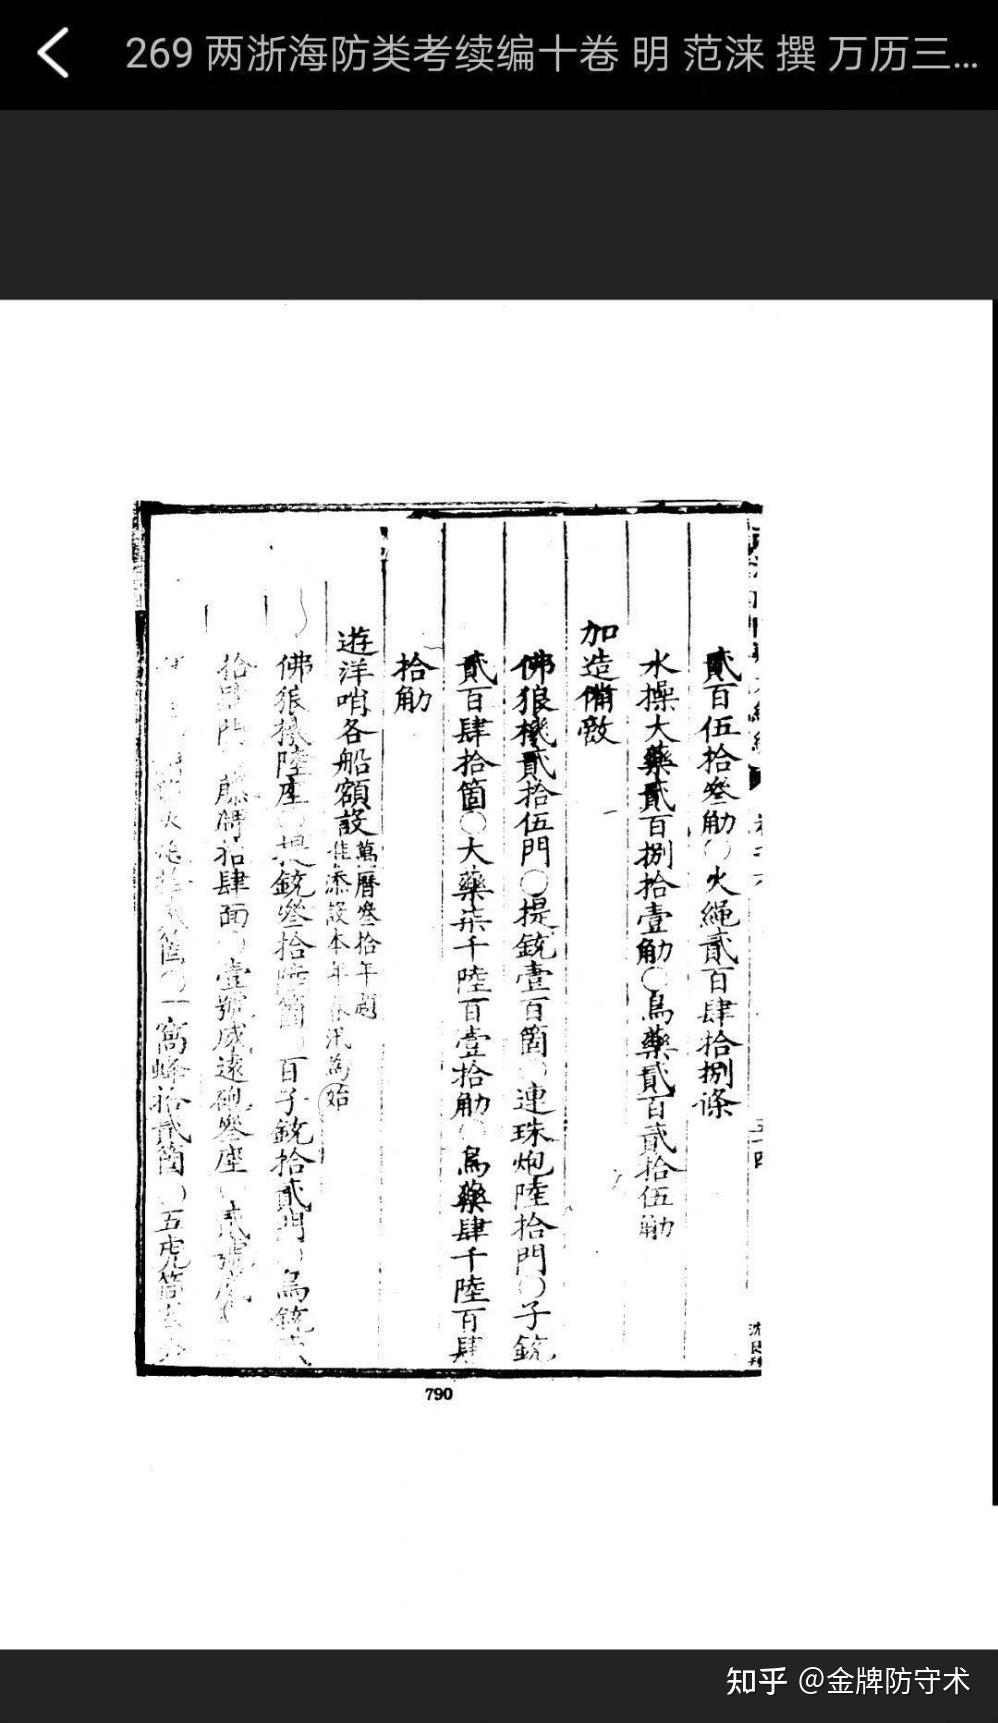 269 两浙海防类考续编十卷 明 范涞 撰 万历三...
貳百伍拾叁觔〇火繩貳百肆拾捌條
水操大藥貳百捌拾壹觔〇鳥藥貳百貳拾伍觔
加造備敵
佛狼機貳拾伍門〇提銃壹百箇〇連珠炮陸拾門〇子銃
貳百肆拾箇〇大藥柒千陸百壹拾觔〇鳥藥肆千陸百肆
拾觔
遊洋哨各船額設
萬曆叁拾年題
准添設本年春汛為始
佛狼機陸座〇提銃叁拾陸箇〇百子銃拾貳門〇鳥銃
拾門 藤牌拾肆面〇壹號威遠砲叁座〇貳號威
箇〇一窩蜂拾貳箇〇五虎箭
790
知乎 @金牌防守术